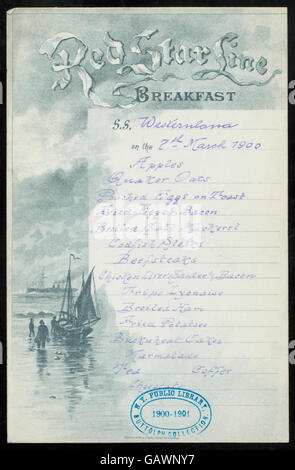 Red Star Line
BREAKFAST
S.S. Westernland
on the 7th March 1900
Apples
Quaker Oats
Poached Eggs on Toast
Fried Bacon
Broiled Mackerel
Codfish Steaks
Beefsteaks
Chicken Liver Bacon
Tripe Lyonaise
Broiled Ham
Fried Potatoes
Buckwheat Cakes
Marmalade
Tea Coffee
N.Y. PUBLIC LIBRARY
1900-1901
BUTTOLPH COLLECTION
alamy
Image ID: GAWNY7
www.alamy.com